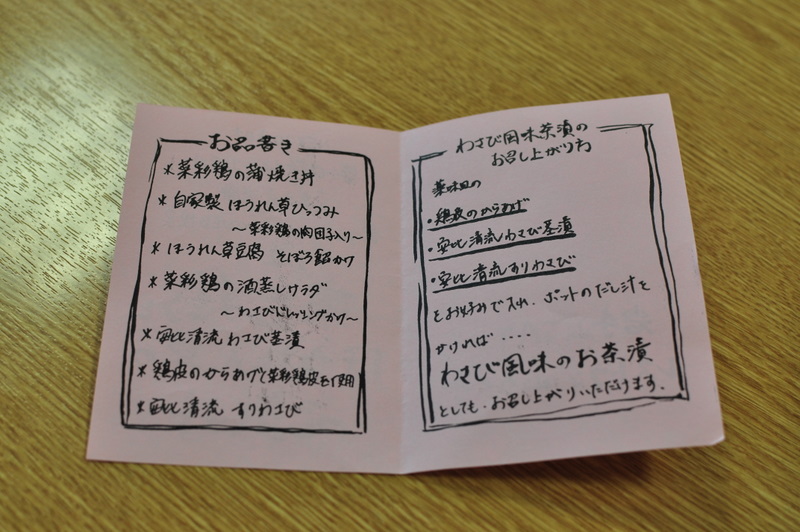 お品書き
*菜彩鶏の蒲焼き丼
*自家製 ほうれん草ひっつみ
～菜彩鶏の肉団子入り～
*ほうれん草豆腐 そぼろ餡かけ
*菜彩鶏の酒蒸しサラダ
～わさびドレッシングかけ～
*安比清流 わさび茎漬
*鶏皮のからあげと菜彩鶏皮を使用
*安比清流 すりわさび
わさび風味茶漬の
お召し上がり方
薬味皿の
・鶏皮のからあげ
・安比清流わさび茎漬
・安比清流すりわさび
をお好みで入れ、ポットのだし汁を
かければ・・・・
わさび風味のお茶漬
としても、お召し上がりいただけます。